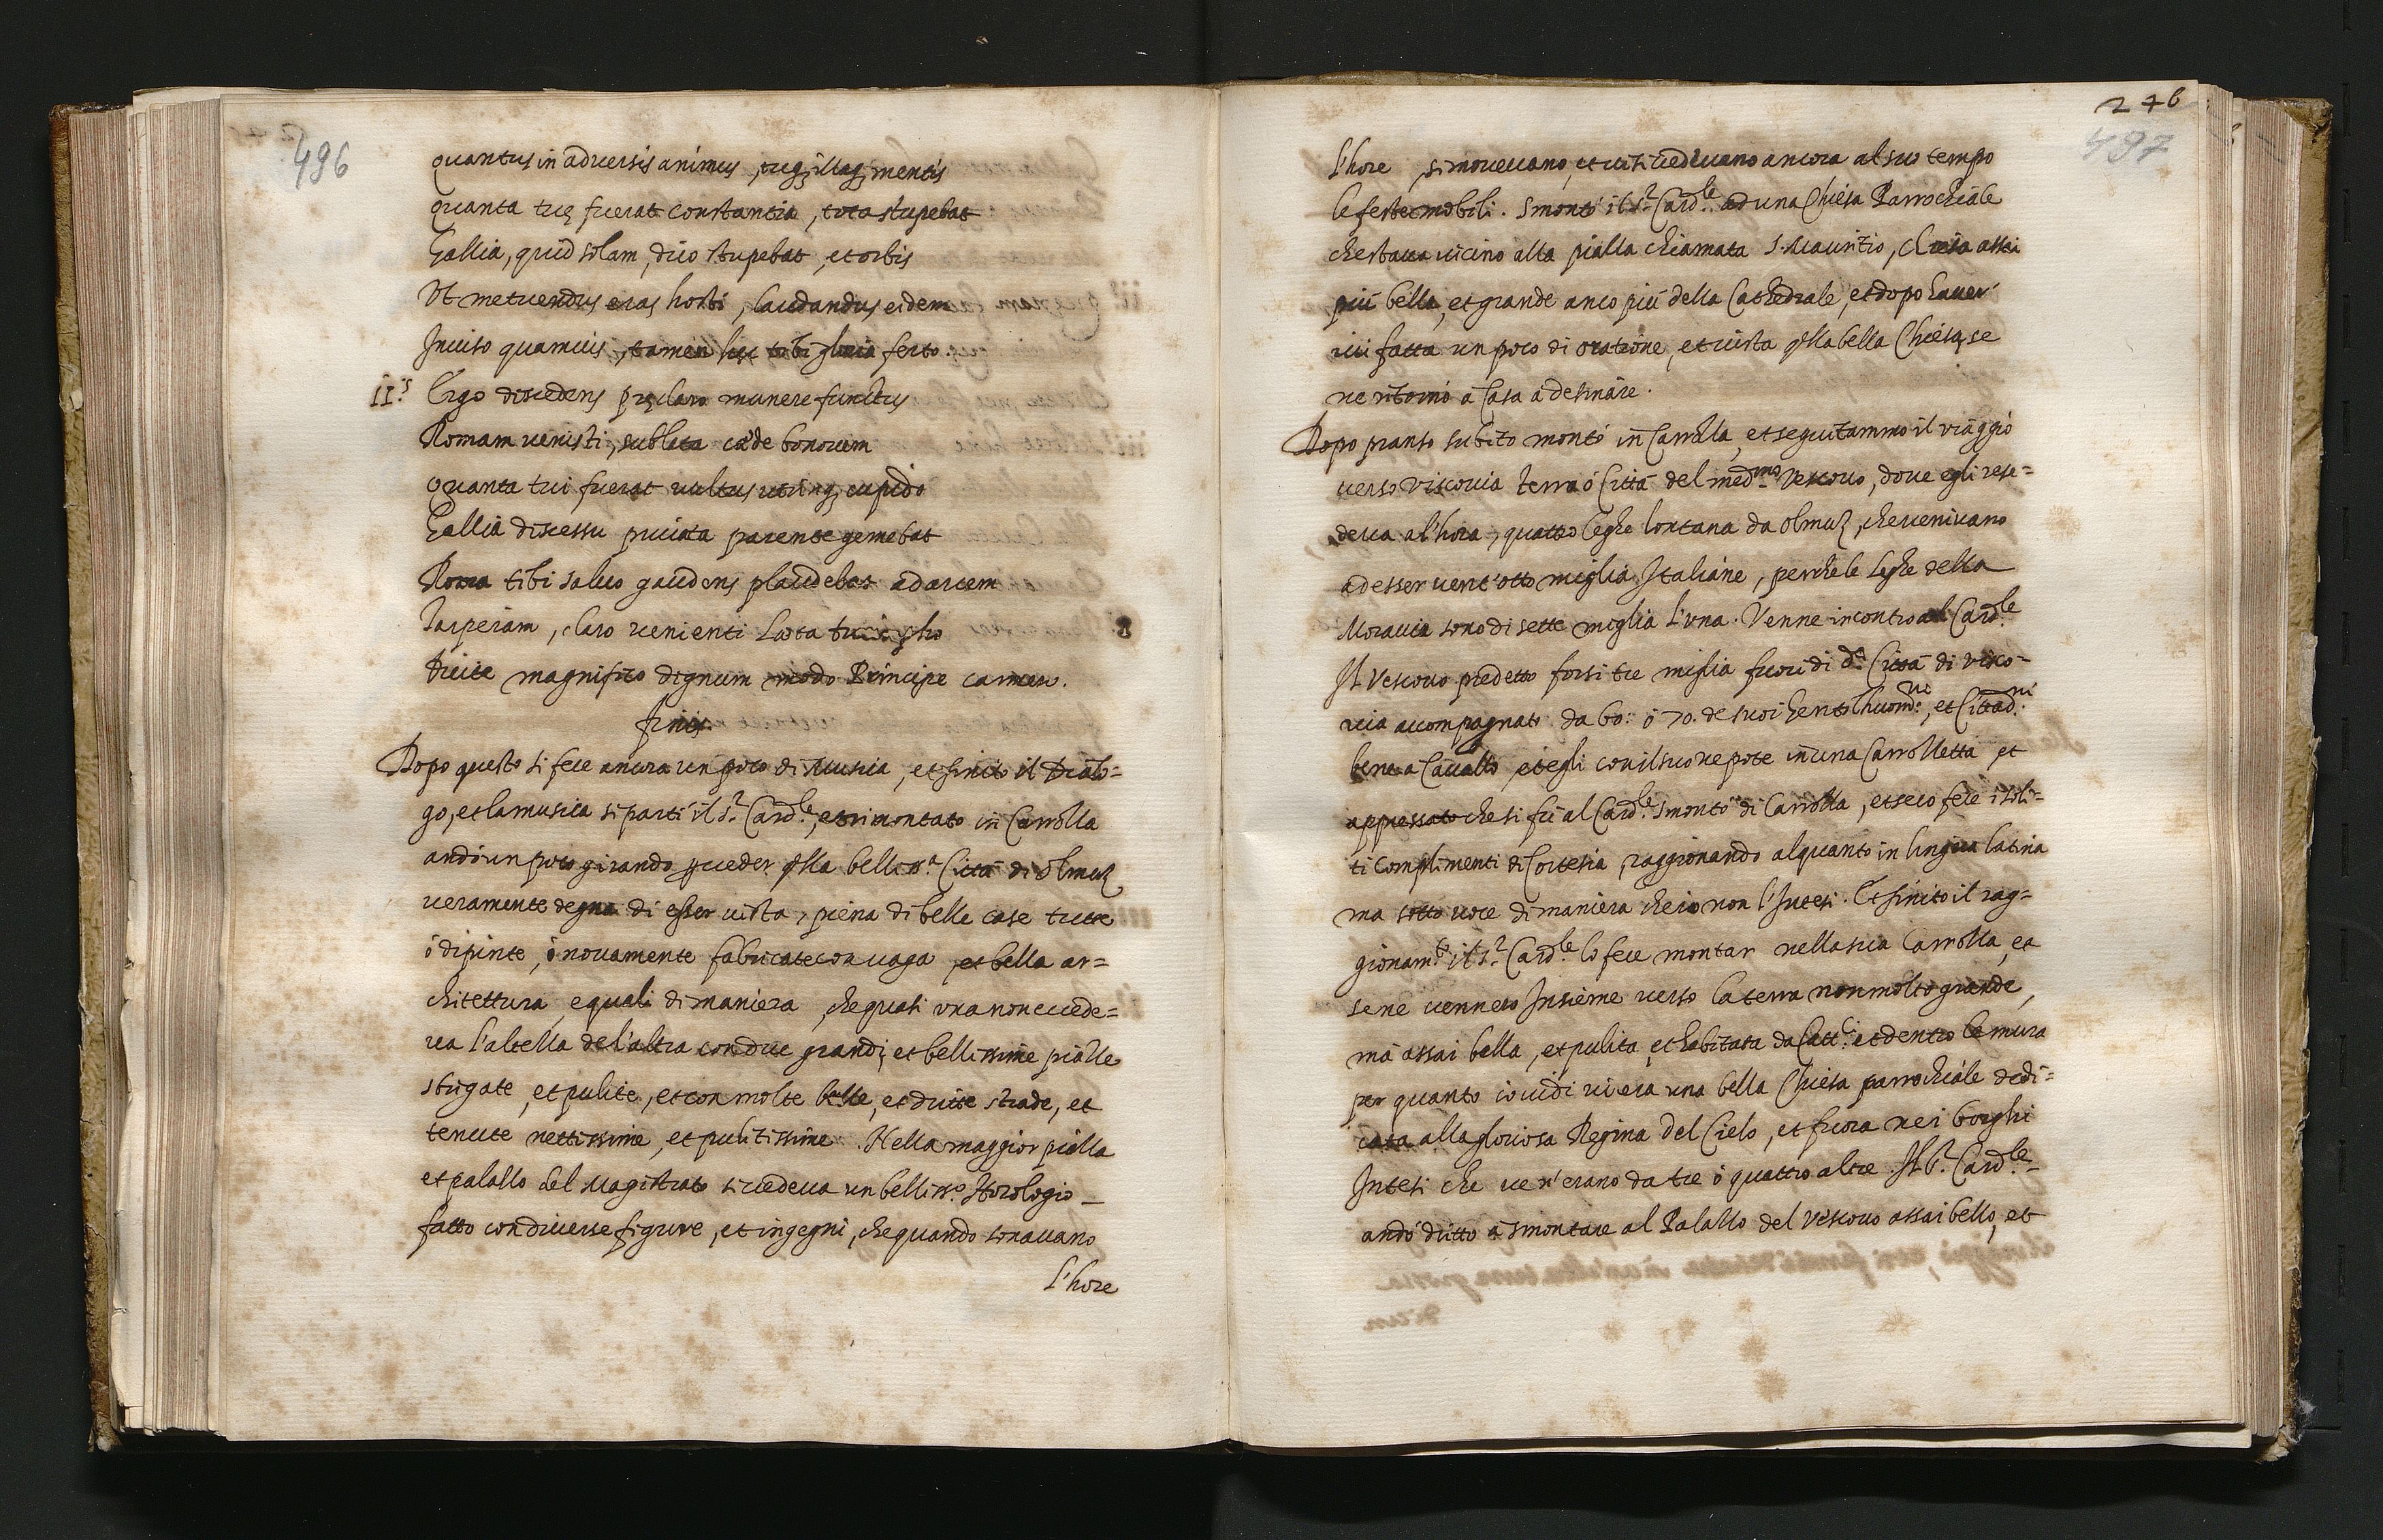 496
quantus in adversis animus, tuęq; illaq; mentis
quanta tuę fuerat constantia, tota stupebat
Gallia, quid solam, dico stupebat, et orbis
Ut metuendus eras hosti, laudandus eidem
Inuito quamuis, tamen hęc tibi gloria festo.
II.s Ergo discedens pręclaro munere functus
Romam uenisti, sublata cæde bonorum
Quanta tui fuerat uultus utrinq; cupido
Gallia discessu priuata parente gemebat
Roma tibi saluo gaudens plaudebat ad arcem
Tarpeiam, claro uenienti Lœta
Dicite magnifico dignum modo Principe carmen.
finis.
Dopo questo si fece ancora un poco di Musica, et finito il Dialo=
go, et la musica si partì il s.r Card.le, et rimontato in Carrozza
andò un poco girando p ueder qlla belliss.a Città di Olmuz
ueramente degna di esser uista, piena di belle case tutte
ò dipinte, ò nouamente fabricate con uaga, et bella ar=
chitettura, equali di maniera, che quasi una non ecede=
ua l'altezza del'altra con due grandi, et bellissime piazze
sbrigate, et pulite, et con molte belle, et dritte strade, et
tenute nettissime, et pulitissime. Nella maggior piazza
et palazzo del Magistrato si uedeua un belliss.o Horologio
fatto con diuerse figure, et ingegni, che quando sonauano
l'hore
276
497
l'hore si moueuano, et ui si uedeuano ancora al suo tempo
le feste mobili. Smontò il s.r Card.le ad una Chiesa Parrochiale
che staua uicino alla piazza chiamata S. Mauritio, chiesa assai
più bella, et grande anco più della Cathedrale, et dopo hauer
iui fatta un poco di oratione, et uista qlla bella Chiesa, se
ne ritornò à Casa à desinare.
Dopo pranso subito montò in Carrozza, et seguitammo il viaggio
uerso Viscouia terra ò Città del med.mo Vescouo, doue egli rese=
deua al'hora, quattro leghe lontana da Olmuz, che ueniuano
ad esser uent'otto miglia Italiane, perche le leghe della
Morauia sono di sette miglia l'una. Venne incontro al Card.le
Il Vescouo predetto forsi tre miglia fuori di d.a Città di Visco=
uia accompagnato da 60. ò 70. de suoi gentilhuom.ni, et Cittad.ni
bene à Cauallo, et egli con il suo nepote in una Carrozzetta et
appressato che si fù al Card.le smontò di Carrozza, et seco fece i soli=
ti complimenti di Cortesia, raggionando alquanto in lingua latina
ma sotto uoce di maniera che io non l'Intesi. Et finito il rag=
gionam.to il s.r Card.le lo fece montar nella sua Carrozza, et
se ne uennero Insieme uerso la terra non molto grande,
mà assai bella, et pulita, et habitata da Catt.ci et dentro le mura
per quanto io uidi ui era una bella Chiesa parrochiale dedi=
cata alla gloriosa Regina del Cielo, et fuora nei borghi
Intesi che ue n'erano da tre ò quattro altre. Il s.r Card.le
andò dritto à smontare al Palazzo del Vescouo assai bello, et